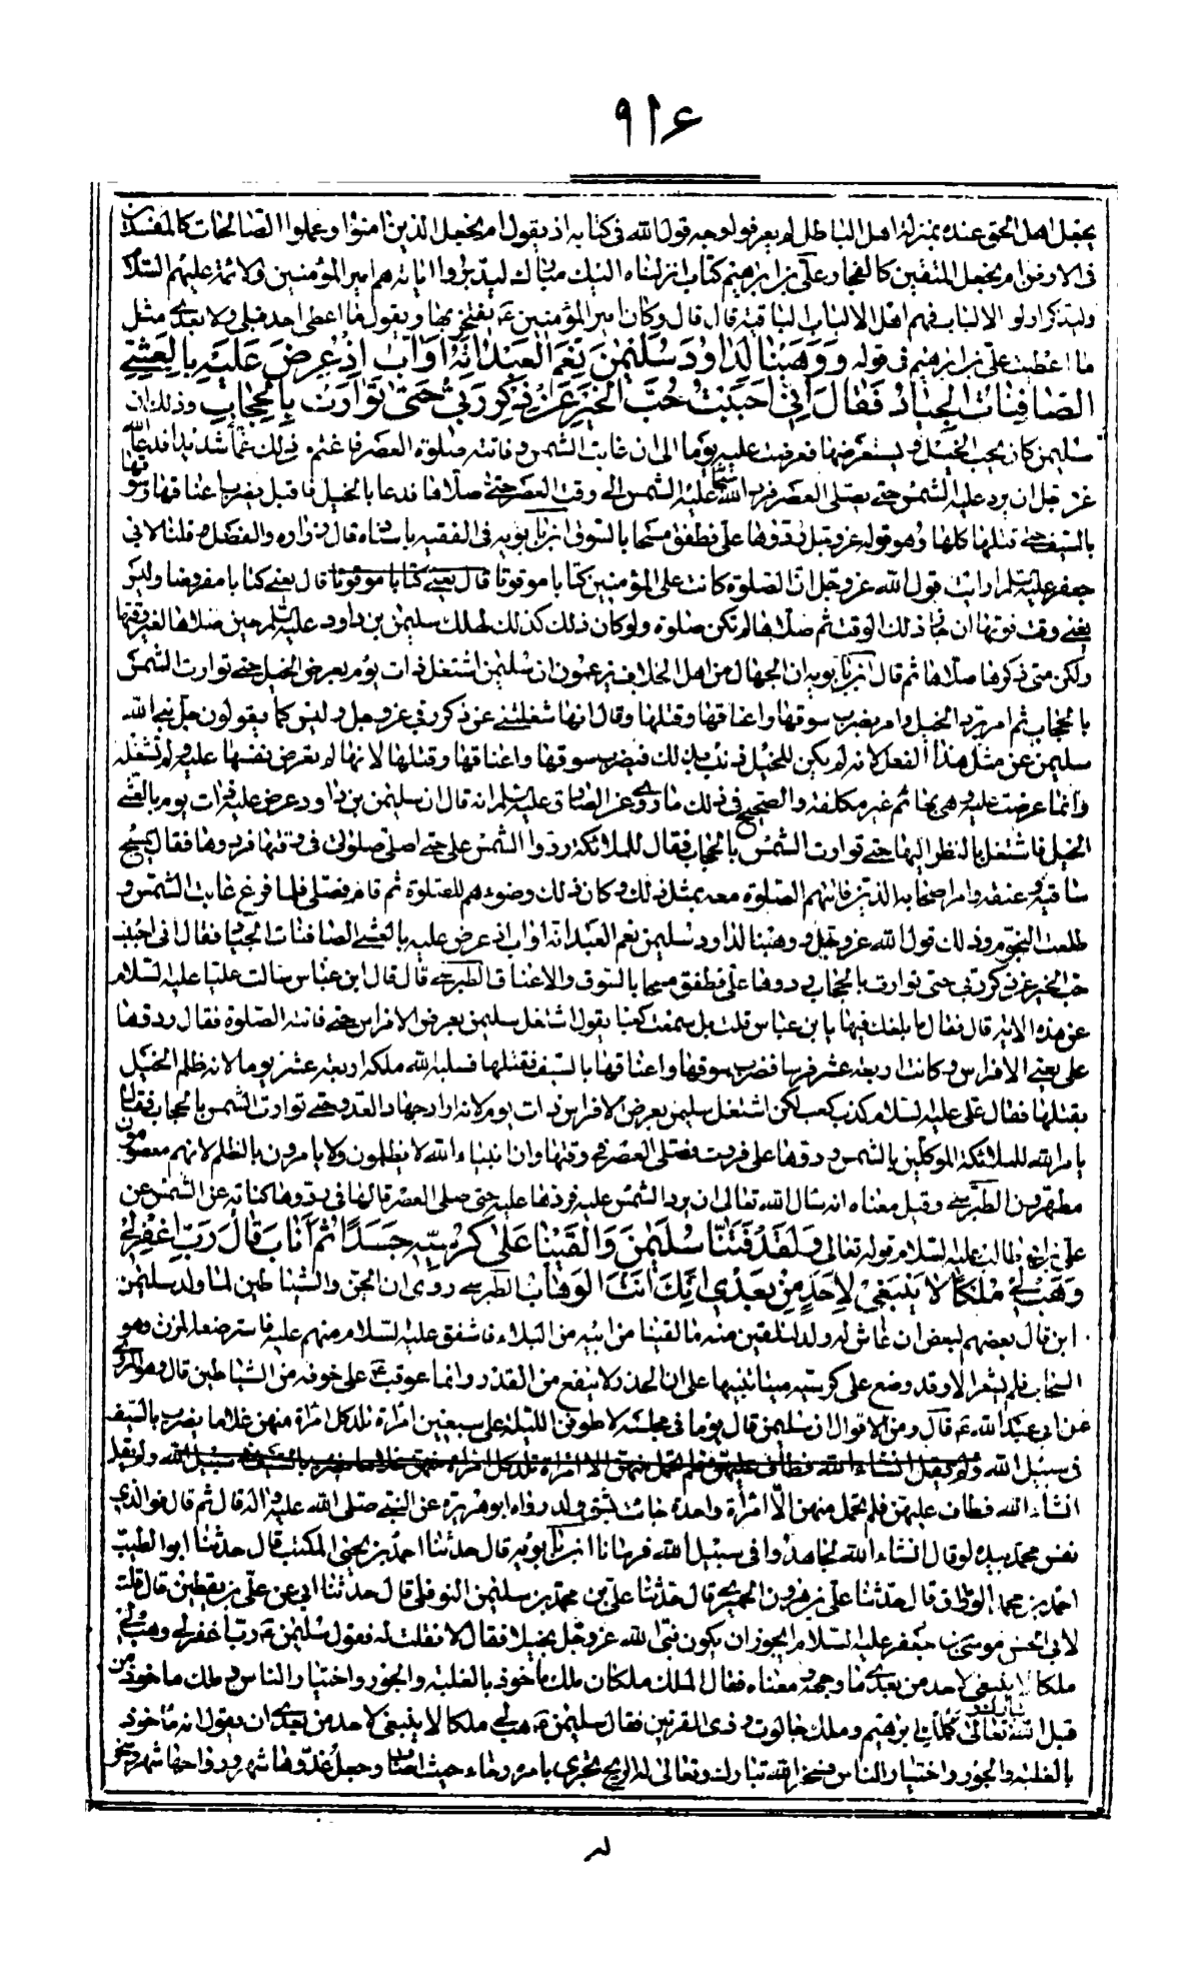 ٩١۶
يجعل اهل الحق عنده بمنزلة اهل الباطل او لم يعرفوا وجه قول الله فى كتابه اذ يقول ام نجعل الذين امنوا وعملوا الصالحات كالمفسدين
فى الارض ام نجعل المتقين كالفجار وعلى بن ابرهيم كتاب انزلناه اليك مبارك ليدبروا اياته هم امير المؤمنين والائمة عليهم السلام
وليتذكر اولو الالباب فهم اهل الالباب الباقية قال قال وكان امير المؤمنين ع يفتخر بها ويقول ما اعطى احد قبلى ولا بعدى مثل
ما اعطيت على بن ابرهيم فى قوله ووهبنا لداود سليمن نعم العبد انه اواب اذ عرض عليه بالعشى
الصافنات الجياد فقال انى احببت حب الخير عن ذكر ربى حتى توارت بالحجاب وذلك ان
سليمن كان يحب الخيل ويستعرضها فعرضت عليه يوما الى ان غابت الشمس وفاتته صلوة العصر فاغتم من ذلك غما شديدا فدعا الله
عز وجل ان يرد عليه الشمس حتى يصلى العصر فرد الله سبحانه عليه الشمس الى وقت العصر حتى صلاها فدعا بالخيل فاقبل يضرب اعناقها وسوقها
بالسيف حتى قتلها كلها وهو قوله عز وجل ردوها على فطفق مسحا بالسوق ابن بابويه فى الفقيه باسناده قال زرارة والفضل قلنا لابى
جعفر عليه السلم ارايت قول الله عز وجل ان الصلوة كانت على المؤمنين كتابا موقوتا قال يعنى كتابا موقوتا قال يعنى كتابا مفروضا وليس
يعنى وقت فوتها ان جاز ذلك الوقت ثم صلاها لم تكن صلوة ولو كان ذلك كذلك لهلك سليمن بن داود عليه السلم حين صلاها لغير وقتها
ولكن متى ذكرها صلاها ثم قال ابن بابويه ان الجهال من اهل الخلاف يزعمون ان سليمن اشتغل ذات يوم بعرض الخيل حتى توارت الشمس
بالحجاب ثم امر برد الخيل وامر بضرب سوقها واعناقها وقتلها وقال انها شغلتنى عن ذكر ربى عز وجل وليس كما يقولون جل نبى الله
سليمن عن مثل هذا الفعل لانه لم يكن للخيل ذنب بذلك فيضرب سوقها واعناقها وقتلها لانها لم تعرض نفسها عليه ولم تشغله
وانما عرضت عليه وهى بهائم غير مكلفة والصحيح فى ذلك ما روى عن الصادق عليه السلم انه قال ان سليمن بن داود عرض عليه ذات يوم بالعشى
الخيل فاشتغل بالنظر اليها حتى توارت الشمس بالحجاب فقال للملائكة ردوا الشمس على حتى اصلى صلوتى فى وقتها فردوها فقام فمسح
ساقيه وعنقه وامر اصحابه الذين فاتتهم الصلوة معه بمثل ذلك وكان ذلك وضوءهم للصلوة ثم قام فصلى فلما فرغ غابت الشمس و
طلعت النجوم وذلك قول الله عز وجل ووهبنا لداود سليمن نعم العبد انه اواب اذ عرض عليه بالعشى الصافنات الجياد فقال انى احببت
حب الخير عن ذكر ربى حتى توارت بالحجاب ردوها على فطفق مسحا بالسوق والاعناق الطبرسى قال قال ابن عباس سالت عليا عليه السلام
عن هذه الاية قال فقال ما بلغك فيها يا بن عباس قلت بلى سمعت كعبا يقول اشتغل سليمن بعرض الافراس حتى فاتته الصلوة فقال ردوها
على يعنى الافراس وكانت اربعة عشر فرسا فضرب سوقها واعناقها بالسيف فقتلها فسلبه الله ملكه اربعة عشر يوما لانه ظلم الخيل
بقتلها فقال على عليه السلام كذب كعب لكن اشتغل سليمن بعرض الافراس ذات يوم لانه اراد جهاد العدو حتى توارت الشمس بالحجاب فقال
بامر الله للملائكة الموكلين بالشمس ردوها على فردت فصلى العصر فى وقتها وان انبياء الله لا يظلمون ولا يامرون بالظلم لانهم معصومون
مطهرون الطبرسى وقيل معناه انه سال الله تعالى ان يرد الشمس عليه فردها عليه حتى صلى العصر فالهاء فى ردوها كناية عن الشمس عن
على بن ابى طالب عليه السلام قوله تعالى ولقد فتنا سليمن والقينا على كرسيه جسدا ثم اناب قال رب اغفر لى
وهب لى ملكا لا ينبغى لاحد من بعدى انك انت الوهاب الطبرسى روى ان الجن والشياطين لما ولد سليمن
ابن قال بعضهم لبعض ان عاش له ولد لنلقين منه ما لقينا من ابيه من البلاء فاشفق عليه السلام منهم عليه فاسترضعه المزن وهو
السحاب فلم يشعر الا وقد وضع على كرسيه ميتا تنبيها على ان الحذر لا ينفع من القدر وانما عوقب ع على خوفه من الشياطين قال وهو المروى
عن ابى عبد الله ع قال ومن الاقوال ان سليمن قال يوما فى مجلسه لاطوفن الليلة على سبعين امراة تلد كل امراة منهن غلاما يضرب بالسيف
فى سبيل الله ولم يقل انشاء الله فطاف عليهن فلم تحمل منهن الا امراة تلد كل امراة منهن غلاما يضرب بالسيف فى سبيل الله ولم يقل
انشاء الله فطاف عليهن فلم تحمل منهن الا امراة واحدة جاءت بشق ولد رواه ابو هريرة عن النبى صلى الله عليه واله قال ثم قال فوالذى
نفس محمد بيده لو قال انشاء الله لجاهدوا فى سبيل الله فرسانا ابن بابويه قال حدثنا احمد بن يحيى المكتب قال حدثنا ابو الطيب
احمد بن محمد الوراق قال حدثنا على بن هرون الحميرى قال حدثنا على بن محمد بن سليمن النوفلى قال حدثنا ابى عن على بن يقطين قال قلت
لابى الحسن موسى بن جعفر عليه السلام ايجوز ان يكون نبى الله عز وجل بخيلا فقال لا فقلت له فقول سليمن ع رب اغفر لى وهب لى
ملكا لا ينبغى لاحد من بعدى ما وجهه ومعناه فقال الملك ملكان ملك ماخوذ بالغلبة والجور واختيار الناس وملك ماخوذ من
قبل الله تبارك وتعالى كملك ال ابرهيم وملك جالوت وذى القرنين فقال سليمن ع هب لى ملكا لا ينبغى لاحد من بعدى ان يقول انه ماخوذ
بالغلبة والجور واختيار الناس فسخر الله تبارك وتعالى له الريح تجرى بامره رخاء حيث اصاب وجعل غدوها شهر ورواحها شهر وسخر
له